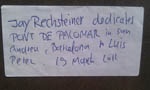 Jay Rechsteiner dedicates
PONT DE PALOMAR in San
Andreu, Barcelona to Luis
Peter 19 March 2011